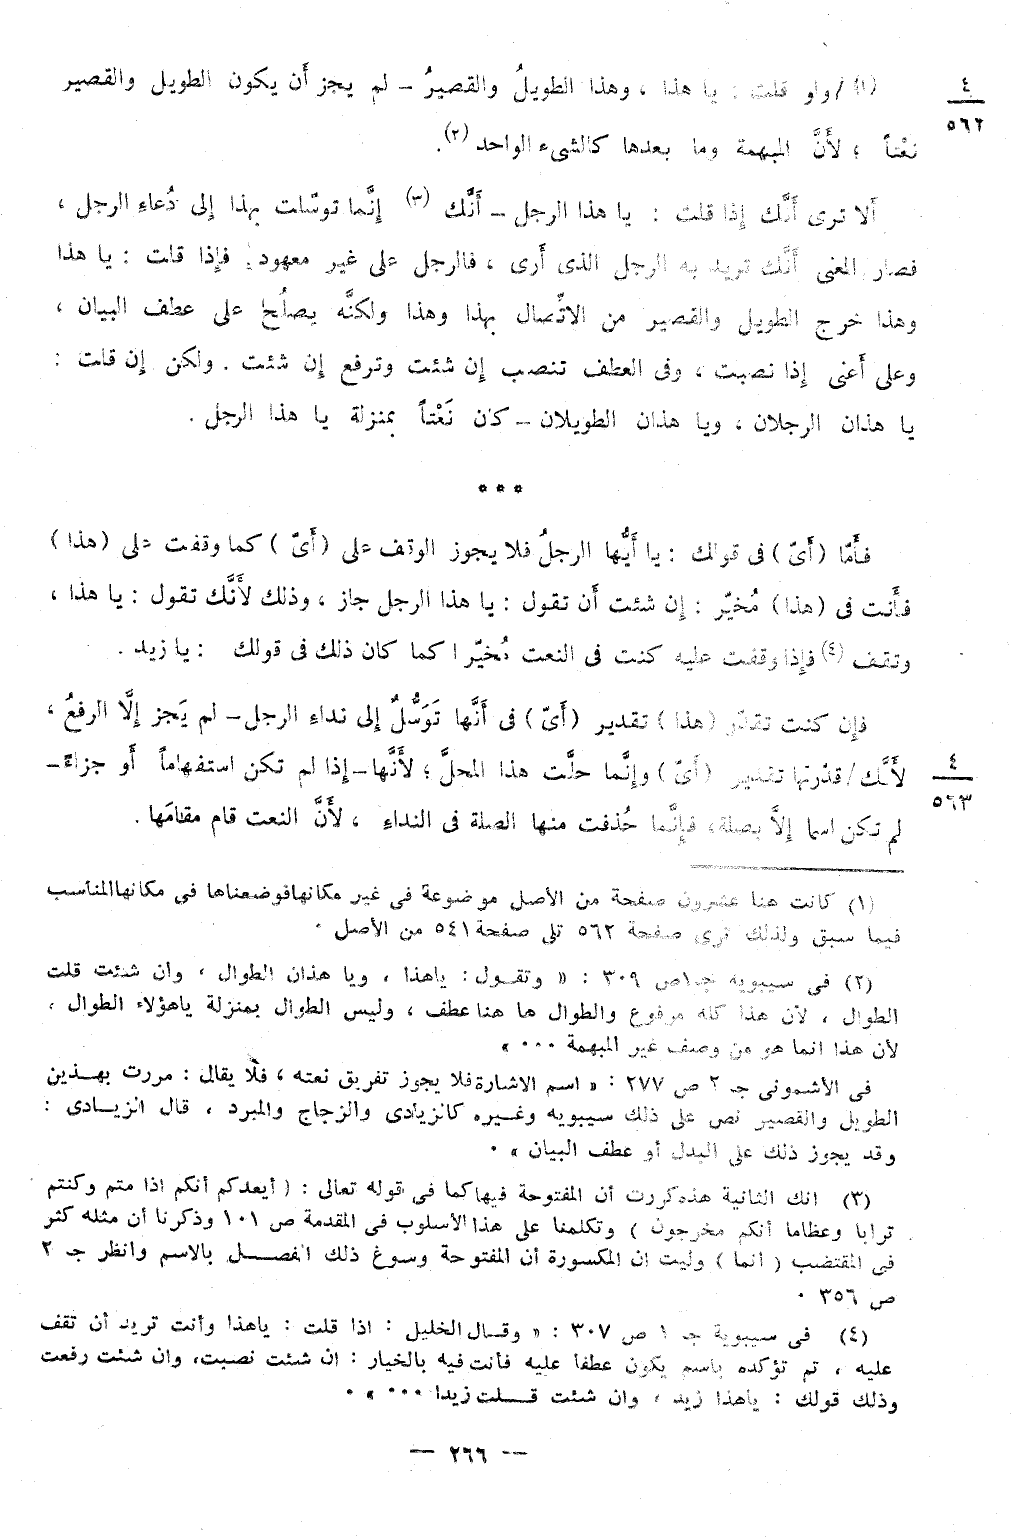 (١) /ولو قلت : يا هذا ، وهذا الطويلُ والقصيرُ – لم يجز أَن يكون الطويل والقصير
٤
٥٦٢
نعْتاً ؛ لأَنَّ المبهمة وما بعدها كالشىء الواحد (٢).
أَلا ترى أَنَّك إذا قلت : يا هذا الرجل – أَنَّك (٣) إنَّما توسّلت بهذا إلى دُعاءِ الرجل ،
فصار المعنى أَنَّك تريد به الرجل الذى أَرى ، فالرجل على غير معهود . فإذا قلت : يا هذا
وهذا خرج الطويل والقصير من الاتِّصال بهذا وهذا ولكنَّه يصلُح على عطف البيان ،
وعلى أَعنى إذا نصبت ، وفى العطف تنصب إن شئت وترفع إن شئت . ولكن إن قلت :
يا هذان الرجلان ، ويا هذان الطويلان – كان نَعْتاً بمنزلة يا هذا الرجل .
* * *
فأَمّا (أَىّ) فى قولك : يا أَيُّها الرجلُ فلا يجوز الوقف على (أَىّ) كما وقفت على (هذا)
فأَنت فى (هذا) مُخيّر : إن شئت أَن تقول : يا هذا الرجل جاز ، وذلك لأَنَّك تقول : يا هذا ،
وتقف (٤) فإذا وقفت عليه كنت فى النعت مُخيّرا كما كان ذلك فى قولك : يا زيد .
فإن كنت تقدّر (هذا) تقدير (أَىّ) فى أَنَّها تَوَسُّلٌ إلى نداءِ الرجل – لم يَجز إلَّا الرفعُ ،
لأَنَّك / قدّرتها تقدير (أَىّ) وإنَّما حلَّت هذا المحلَّ ؛ لأَنَّها – إذا لم تكن استفهاماً أَو جزاءً –
٤
٥٦٣
لم تكن اسما إلَّا بصلة، فإنَّما حُذفت منها الصلة فى النداءِ ، لأَنَّ النعت قام مقامَها .
(١) كانت هنا عشرون صفحة من الأصل موضوعة فى غير مكانها فوضعناها فى مكانها المناسب
فيما سبق ولذلك ترى صفحة ٥٦٢ تلى صفحة ٥٤١ من الأصل ٠
(٢) فى سيبويه جـ ١ ص ٣٠٩ : « وتقول : ياهذا ، ويا هذان الطوال ، وان شئت قلت
الطوال ، لأن هذا كله مرفوع والطوال ها هنا عطف ، وليس الطوال بمنزلة ياهؤلاء الطوال ،
لأن هذا انما هو من وصف غير المبهمة ٠٠٠ »
فى الأشمونى جـ ٢ ص ٢٧٧ : « اسم الاشارة فلا يجوز تفريق نعته ، فلا يقال : مررت بهذين
الطويل والقصير نص على ذلك سيبويه وغيره كالزيادى والزجاج والمبرد ، قال الزيادى :
وقد يجوز ذلك على البدل أو عطف البيان » ٠
(٣) انك الثانية هذه كررت أن المفتوحة فيها كما فى قوله تعالى : ( أيعدكم أنكم اذا متم وكنتم
ترابا وعظاما أنكم مخرجون ) وتكلمنا على هذا الأسلوب فى المقدمة ص ١٠١ وذكرنا أن مثله كثر
فى المقتضب ( أنما ) وليت ان المكسورة أن المفتوحة وسوغ ذلك الفصل بالاسم وانظر جـ ٢
ص ٣٥٦ ٠
(٤) فى سيبوية جـ ١ ص ٣٠٧ : « وقال الخليل : اذا قلت : ياهذا وأنت تريد أن تقف
عليه ، ثم تؤكده باسم يكون عطفا عليه فأنت فيه بالخيار : ان شئت نصبت، وان شئت رفعت
وذلك قولك : ياهذا زيد ، وان شئت قلت زيدا ٠٠٠ » ٠
— ٢٦٦ —